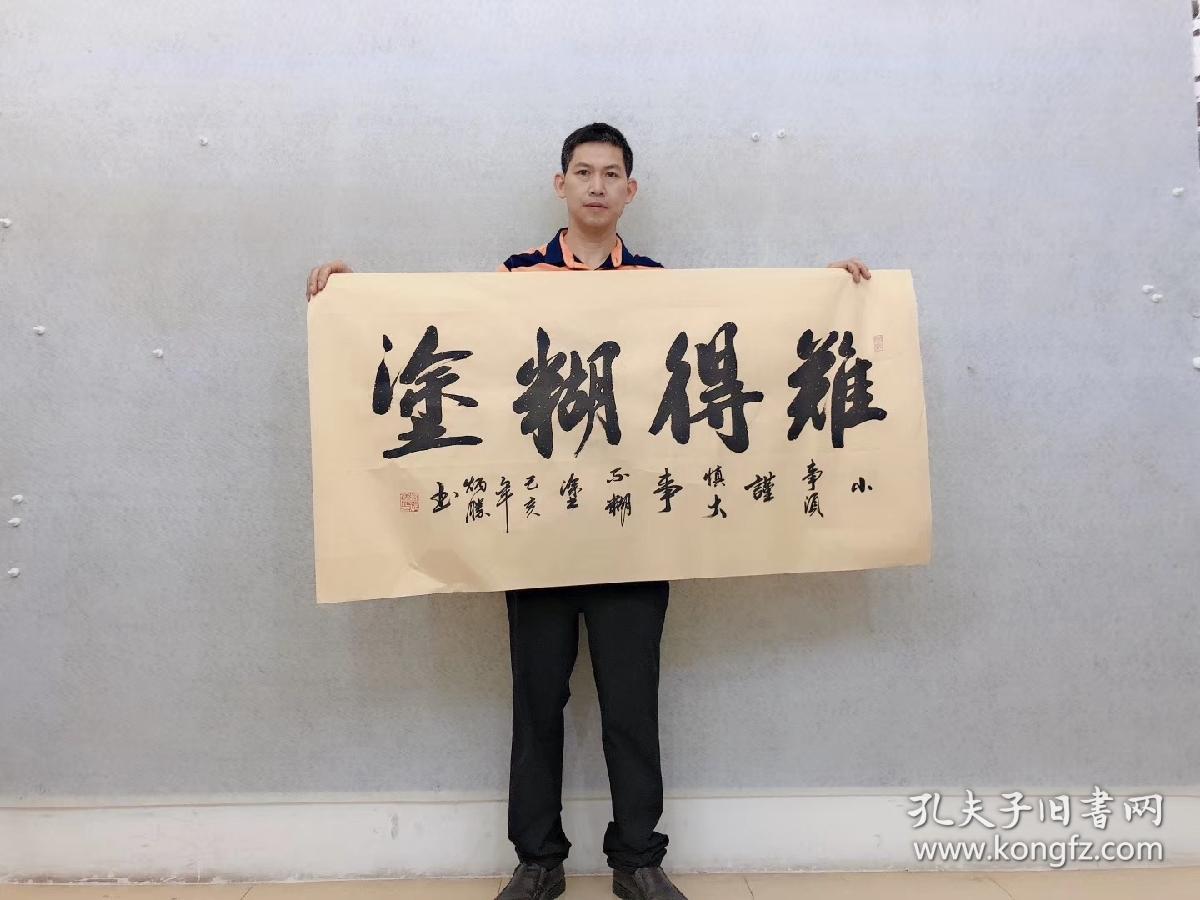 難得糊塗
小
事須
謹
慎大
事
不糊
塗
己亥
年
炳勝
书
孔夫子旧书网
www.kongfz.com